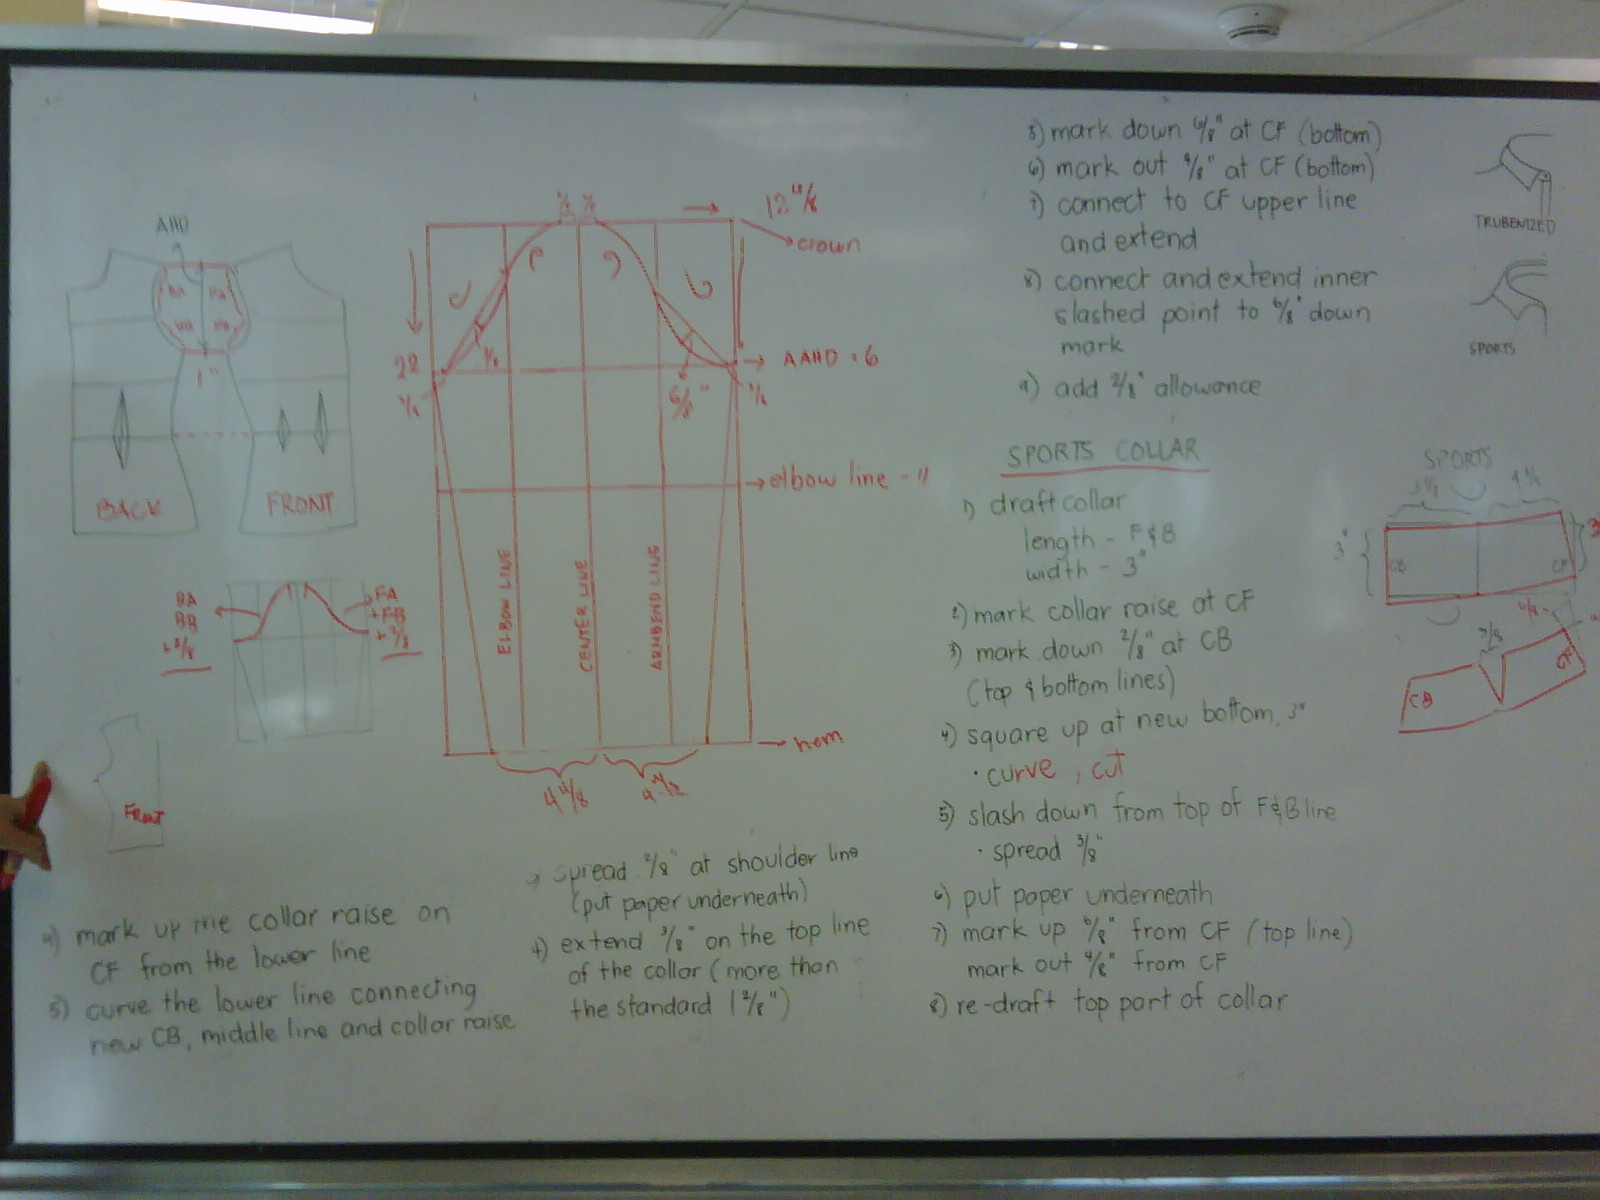 AHD
BA
FA
BB
FB
1"
BACK
FRONT
BA
BB
+2/8
FA
+FB
+2/8
FRONT
12 4/8
crown
22
AAHD = 6
6/8"
elbow line - 11
ELBOW LINE
CENTER LINE
ARMBEND LINE
hem
4 4/8
4) mark up the collar raise on
CF from the lower line
5) curve the lower line connecting
new CB, middle line and collar raise
spread 2/8" at shoulder line
(put paper underneath)
extend 3/8" on the top line
of the collar (more than
the standard 1 2/8")
5) mark down 6/8" at CF (bottom)
6) mark out 4/8" at CF (bottom)
7) connect to CF upper line
and extend
8) connect and extend inner
slashed point to 6/8" down
mark
9) add 2/8" allowance
SPORTS COLLAR
1) draft collar
length - F & B
width - 3"
2) mark collar raise at CF
3) mark down 2/8" at CB
(top & bottom lines)
4) square up at new bottom, 3"
• curve, cut
5) slash down from top of F&B line
• spread 3/8"
6) put paper underneath
7) mark up 6/8" from CF (top line)
mark out 4/8" from CF
8) re-draft top part of collar
TRUBENIZED
SPORTS
SPORTS
3"
CB
CF
3
CB
CF